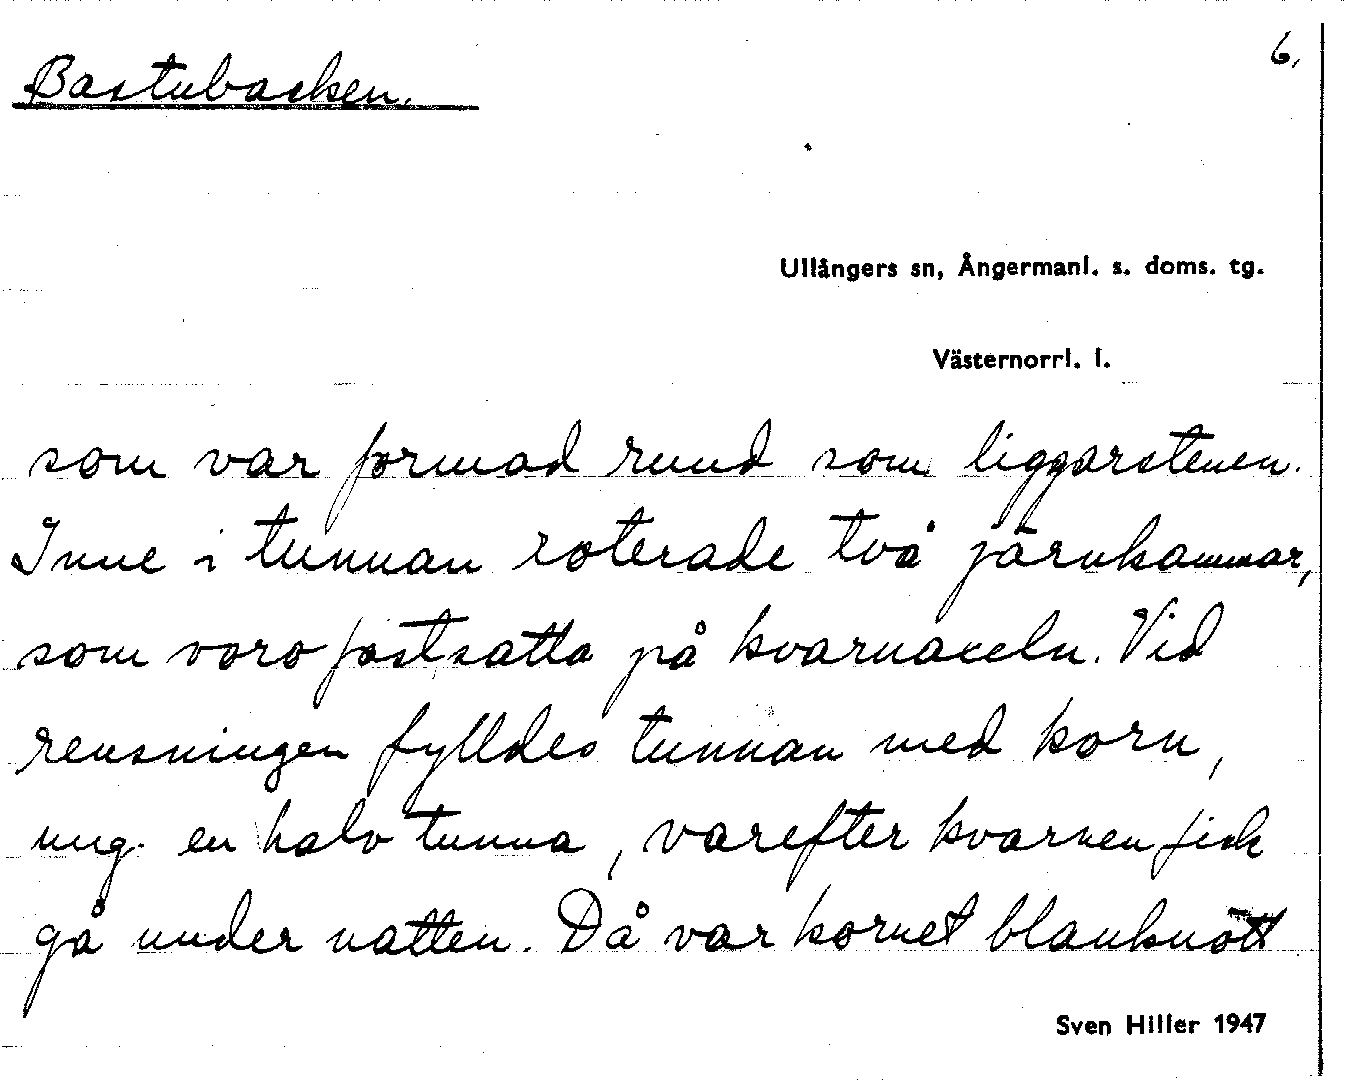 Bastubacken.
6.
Ullångers sn, Ångermanl. s. doms. tg.
Västernorrl. l.
som var formad rund som liggarstenen.
Inne i tunnan roterade två järnkammar,
som voro fastsatta på kvarnaxeln. Vid
rensningen fylldes tunnan med korn,
ung. en halv tunna, varefter kvarnen fick
gå under natten. Då var kornet blanknött
Sven Hiller 1947